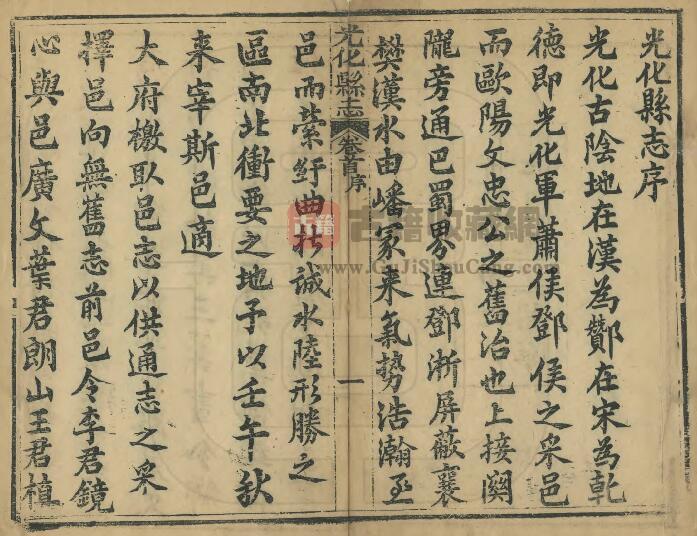 光化縣志序
光化古陰地在漢為酇在宋為乾
德即光化軍蕭侯鄧侯之采邑
而歐陽文忠公之舊治也上接關
隴旁通巴蜀界連鄧淅屏蔽襄
樊漢水由嶓冢來氣勢浩瀚至
光化縣志 卷首序 一
邑而縈紆曲折誠水陸形勝之
區南北衝要之地予以壬午秋
來宰斯邑適
大府檄取邑志以供通志之采
擇邑向無舊志前邑令李君鏡
心與邑廣文葉君朗山王君植
古籍收藏網
www.GuJiShouCang.com
古籍